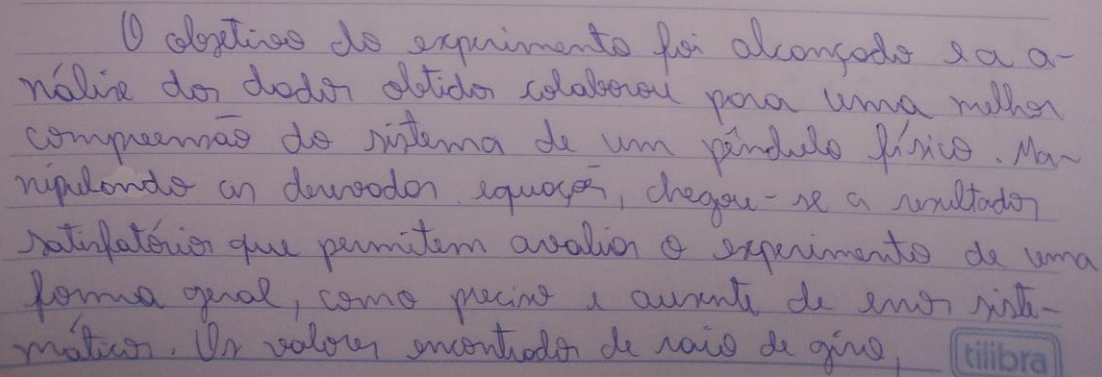 O objetivo do experimento foi alcançado e a a-
nálise dos dados obtidos colaborou para uma melhor
compreensão do sistema de um pêndulo físico. Ma-
nipulando as equações, chegou-se a resultados
satisfatórios que permitem avaliar o experimento de uma
forma geral, como preciso e ausente de erros siste-
máticos. Os valores encontrados de raio de giro,
tilibra